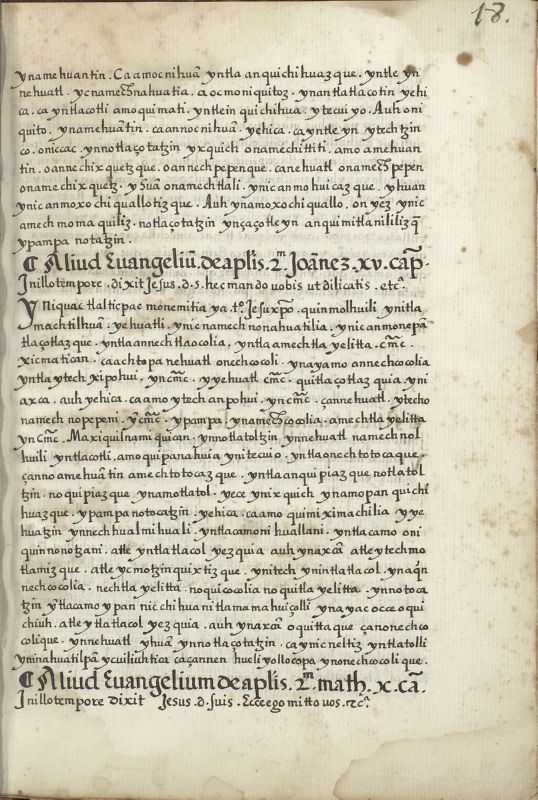 18.
ynamehuantin. Ca amo cnihuā yntla anquichihuazque. yntle yn
nehuatl. yc namechnahuatia. aocmo niquitoz. ynantlatlacotin yehi
ca. ca yntlacotli amo quimati. yntlein quichihua. ytecuiyo. Auh oni
quito. ynamehuātin. ca annocnihuā. yehica. ca yntle yn ytechtzin
co. oniccac ynnotlaçotatzin yxquich onamechittiti. amo amehuan
tin. oannechixquetzque. oannechpepenque. ca nehuatl onamechpepen
onamechixquetz. yhuā onamechtlali. ynic anmohuicazque. yhuan
ynic anmoxochiquallotizque. Auh yn amoxochiquallo. onyez ynic
amechmomaquiliz. notlaçotatzin ynçaçotleyn anquimitlanililizq̄
ypampa notatzin.
¶ Aliud Euangeliū. de aplis. 2m Joānez. xv. cap̄.
Jn illo tempore. dixit Jesus. d. s. hec mando vobis ut diligatis. etcª.
Yniquac tlalticpac monemitiaya. tº. Jesu xp̄o. quinmolhuili ynitla
machtilhuā. yehuatli. ynic namechnonahuatilia. ynic anmonepā
tlaçotlazque. yntla annechtlaocolia, yntla amechtlayelitta. c̄m̄c.
xicmatican. ca achtopa nehuatl onechcocoli. ynayamo annechcocolia
yntla ytech xipohui, yn c̄m̄c. yyehuatl c̄m̄c. quitlaçotlazquia. yni
axca. auh yehica. ca amo ytech anpohui. yn c̄m̄c. çan nehuatl. ytecho
namechnopepeni. yc̄m̄c. ypampa. ynamechcocolia. amechtlayelitta
yn c̄m̄c. Maxiquilnamiquican. ynnotlatoltzin. ynnehuatl namechnol
huili yntlacotli, amo quipanahuia ynitecuio. yntla onechtotocaque.
çanno amehuātin amechtotocazque. yntla anquipiazque notlatol
tzin. no quipiazque ynamotlatol. yece ynixquich ynamopan quichi
huazque. ypampa notocatzin. yehica. ca amo quimiximachilia yye
huatzin ynnechhualmihuali. yntlacamo nihuallani. yntlacamo oni
quinnonotzani. atle yntlatlacol yezquia auh ynaxcā atle ytechmo
tlamizque. atle ycmotzinquixtizque. ynitech ynintlatlacol. ynaqn
nechcocolia. nechtlayelitta. no quicocolia noquitlayelitta. ynnotoca
tzin yntlacamo ypan nicchihuani tlamamahuiçolli ynayac occe oqui
chiuh. atle ytlatlacol yezquia. auh ynaxcā oquittaque çanonechco
colique. ynnehuatl yhuā ynnotlaçotatzin. ca ynic neltiz yntlatolli
yninahuatilpā ycuiliuhtica caçannen huel iyollocopa ynonechcocolique.
¶ Aliud Euangelium de aplis. 2m. math. x. cā.
Jn illo tempore dixit Jesus. d. suis. Ecce ego mitto vos. etcª.